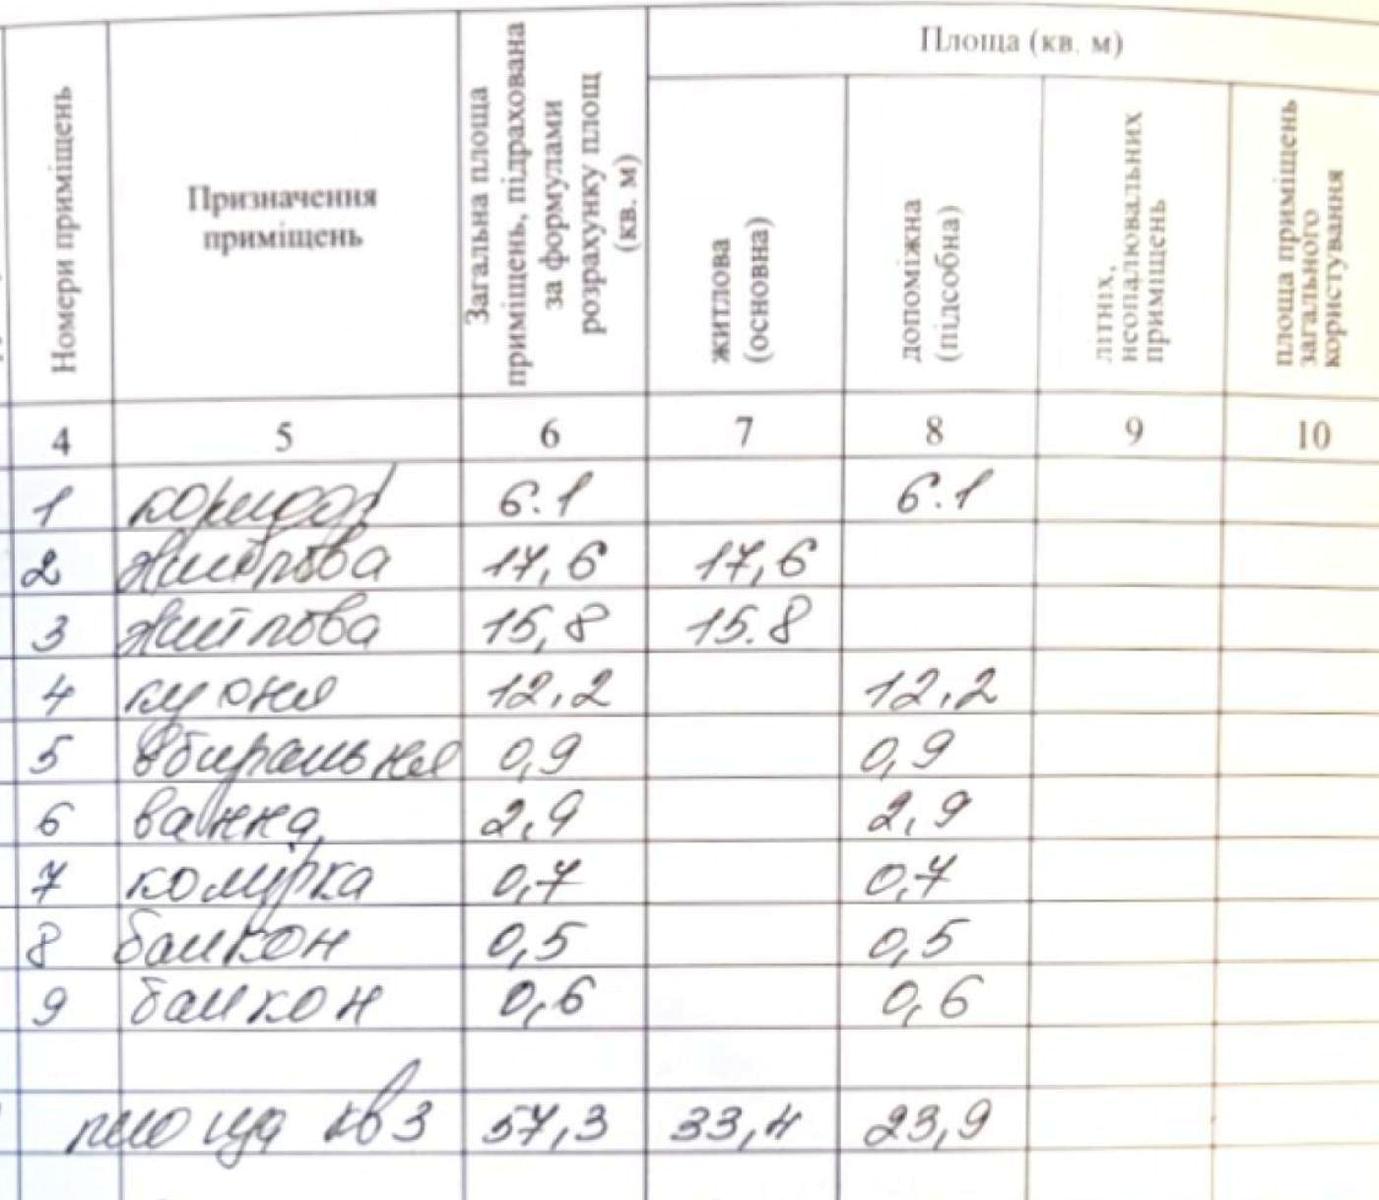 Площа (кв. м)
Номери приміщень
Призначення
приміщень
Загальна площа
приміщень, підрахована
за формулами
розрахунку площ
(кв. м)
житлова
(основна)
допоміжна
(підсобна)
літніх,
неопалювальних
приміщень
площа приміщень
загального
користування
4 5 6 7 8 9 10
1 коридор 6.1 6.1
2 житлова 17,6 17,6
3 житлова 15,8 15.8
4 кухня 12,2 12,2
5 вбиральня 0,9 0,9
6 ванна 2,9 2,9
7 комірка 0,7 0,7
8 балкон 0,5 0,5
9 балкон 0,6 0,6
площа кв 3 57,3 33,4 23,9